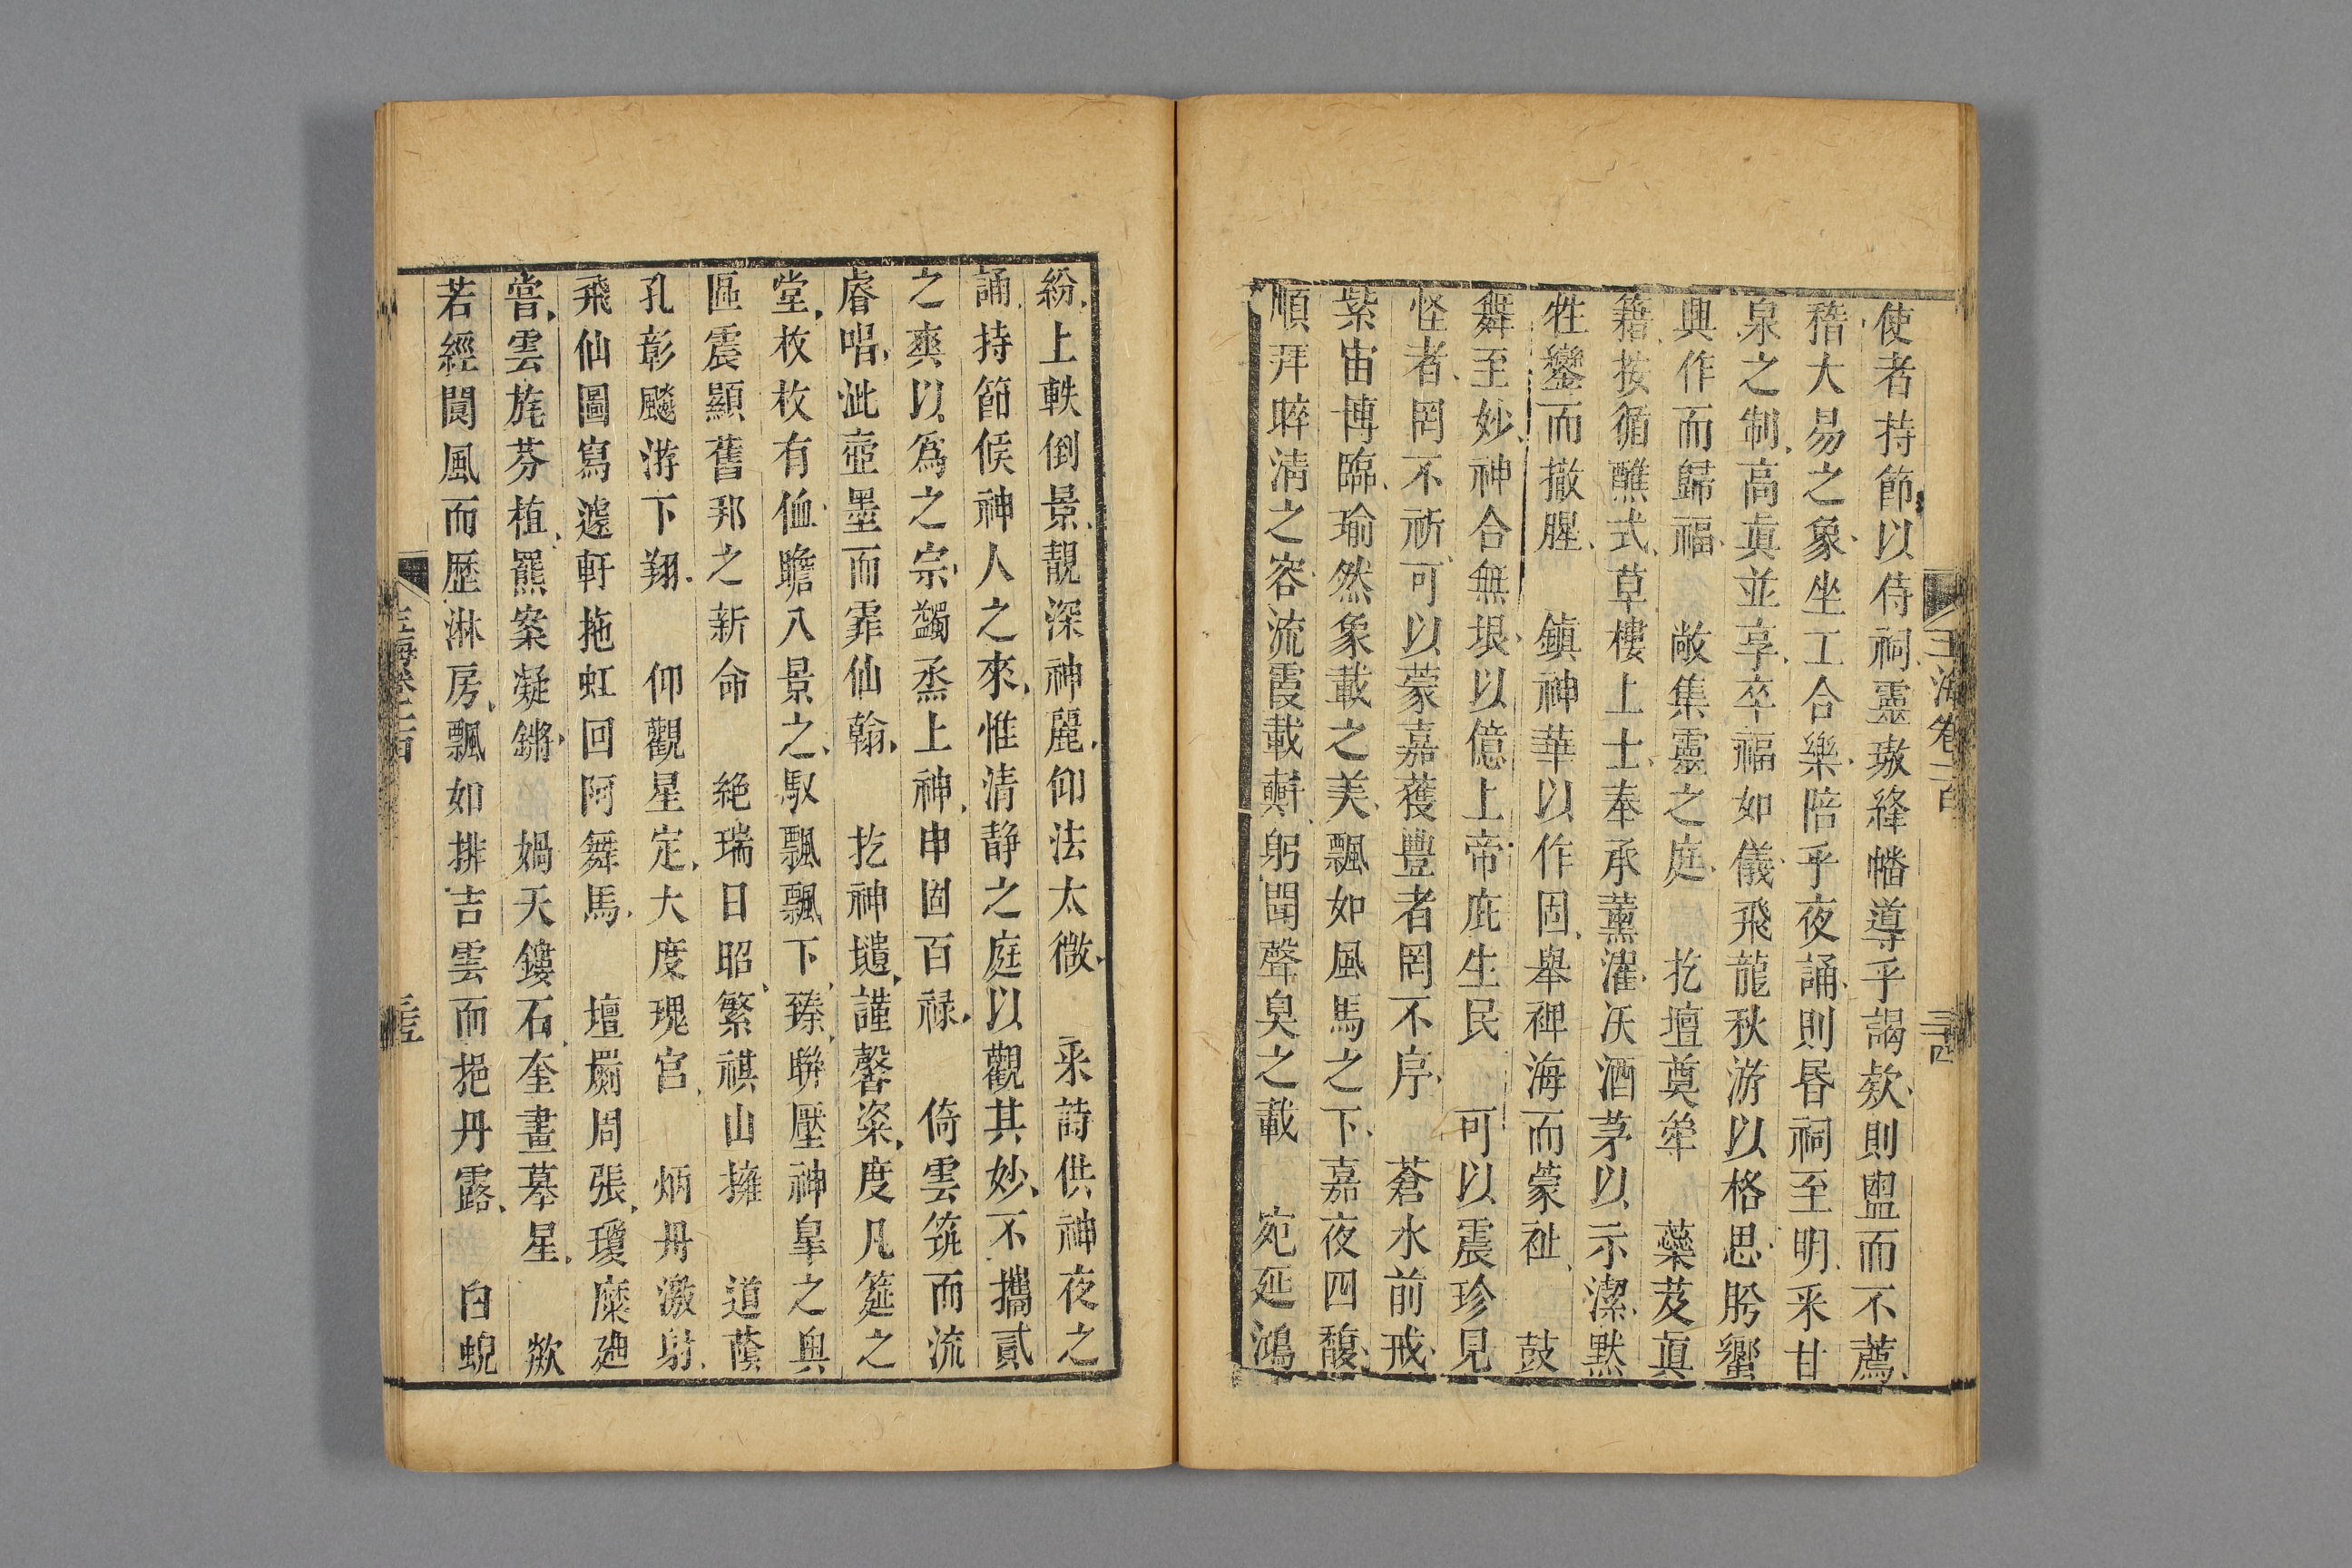 使者持節以侍祠靈璈絳幡導乎謁欵則盥而不薦
稽大易之象坐工合樂陪乎夜誦則昬祠至明釆甘
泉之制高真並享卒福如儀飛龍秋游以格思肸蠁
興作而歸福　敞集靈之庭　扢壇奠犖　藥芨真
籍按循醮式草樓上士奉承薰濯沃酒茅以示潔黙
牲鑾而撤腥　鎮神華以作固舉禆海而蒙祉　鼓
舞至妙神合無垠以億上帝庇生民　可以震珍見
怪者罔不祈可以蒙嘉獲豐者罔不序　蒼水前戒
紫宙博臨瑜然象載之美飄如風馬之下嘉夜四馥
順拜晬清之容流霞載軿躬聞聲臭之載　宛延鴻
玉海卷二百
三四
紛上軼倒景靚深神麗仰法太微　釆詩供神夜之
誦持節候神人之來惟清静之庭以觀其妙不攜貳
之爽以爲之宗蠲烝上神申固百禄　倚雲筑而流
睿唱泚壺墨而霏仙翰　扢神壝謹馨粢度凡筵之
堂枚枚有侐瞻八景之馭飄飄下臻聨壓神臯之奥
區震顯舊邦之新命　絶瑞日昭繁祺山擁　道蔭
孔彰飈游下翔　仰觀星定大度瑰宮　炳丹激射
飛仙圖寫遽軒拖虹回阿舞馬　壇罽周張瓊糜廸
嘗雲旄芬植羆案凝鏘　媧天鏤石奎畫摹星　歘
若經閬風而歷淋房飄如排吉雲而挹丹露　白蜺
三五